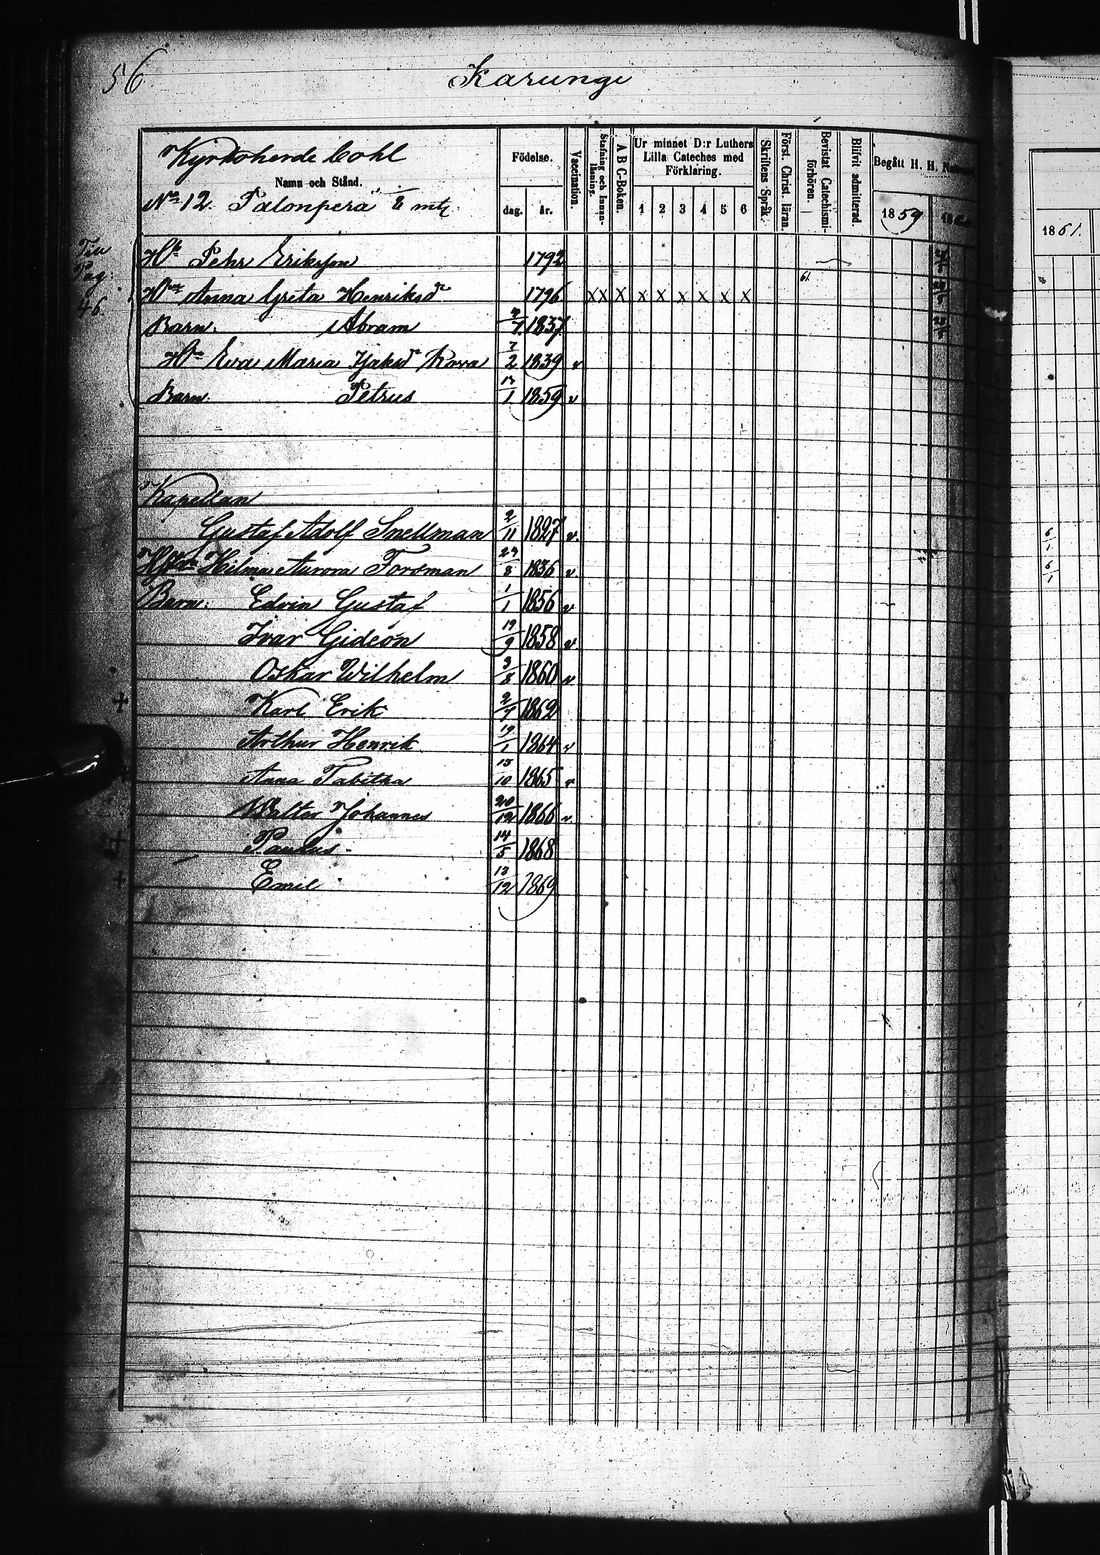 56
Karungi
Kyrkoherde Cohl
Namn och Stånd.
No 12. Palonperä
Födelse.
dag. år.
Vaccination.
Stafning och innan-läsning.
A B C-Boken.
Ur minnet D:r Luthers Lilla Cateches med Förklaring.
1 2 3 4 5 6
Skriftens Språk.
Först. Christ. läran.
Bevistat Catechismi-förhören.
Blifvit admitterad.
Begått H. H.
1859
1861.
Till Pag. 46.
Pehr Eriksson 1792
Anna Greta Henriksdr 1796 X X X X X X X X X
Barn: Abram 1837
Hu Eva Maria 1839 v
Barn: Petrus 17/1 1859 v
Kapellan
Gustaf Adolf Snellman 2/11 1827 v
Hilma Aurora Forsman 29/8 1836 v
Barn: Edvin Gustaf 1/1 1856 v
Ivar Gideon 19/9 1858 v
Oskar Wilhelm 3/8 1860 v
+ Karl Erik 2/7 1862
Arthur Henrik 19/1 1864 v
Anna Tabitha 15/10 1865 v
Walter Johannes 20/12 1866 v
+ Paulus 14/5 1868
+ Emil 13/12 1869